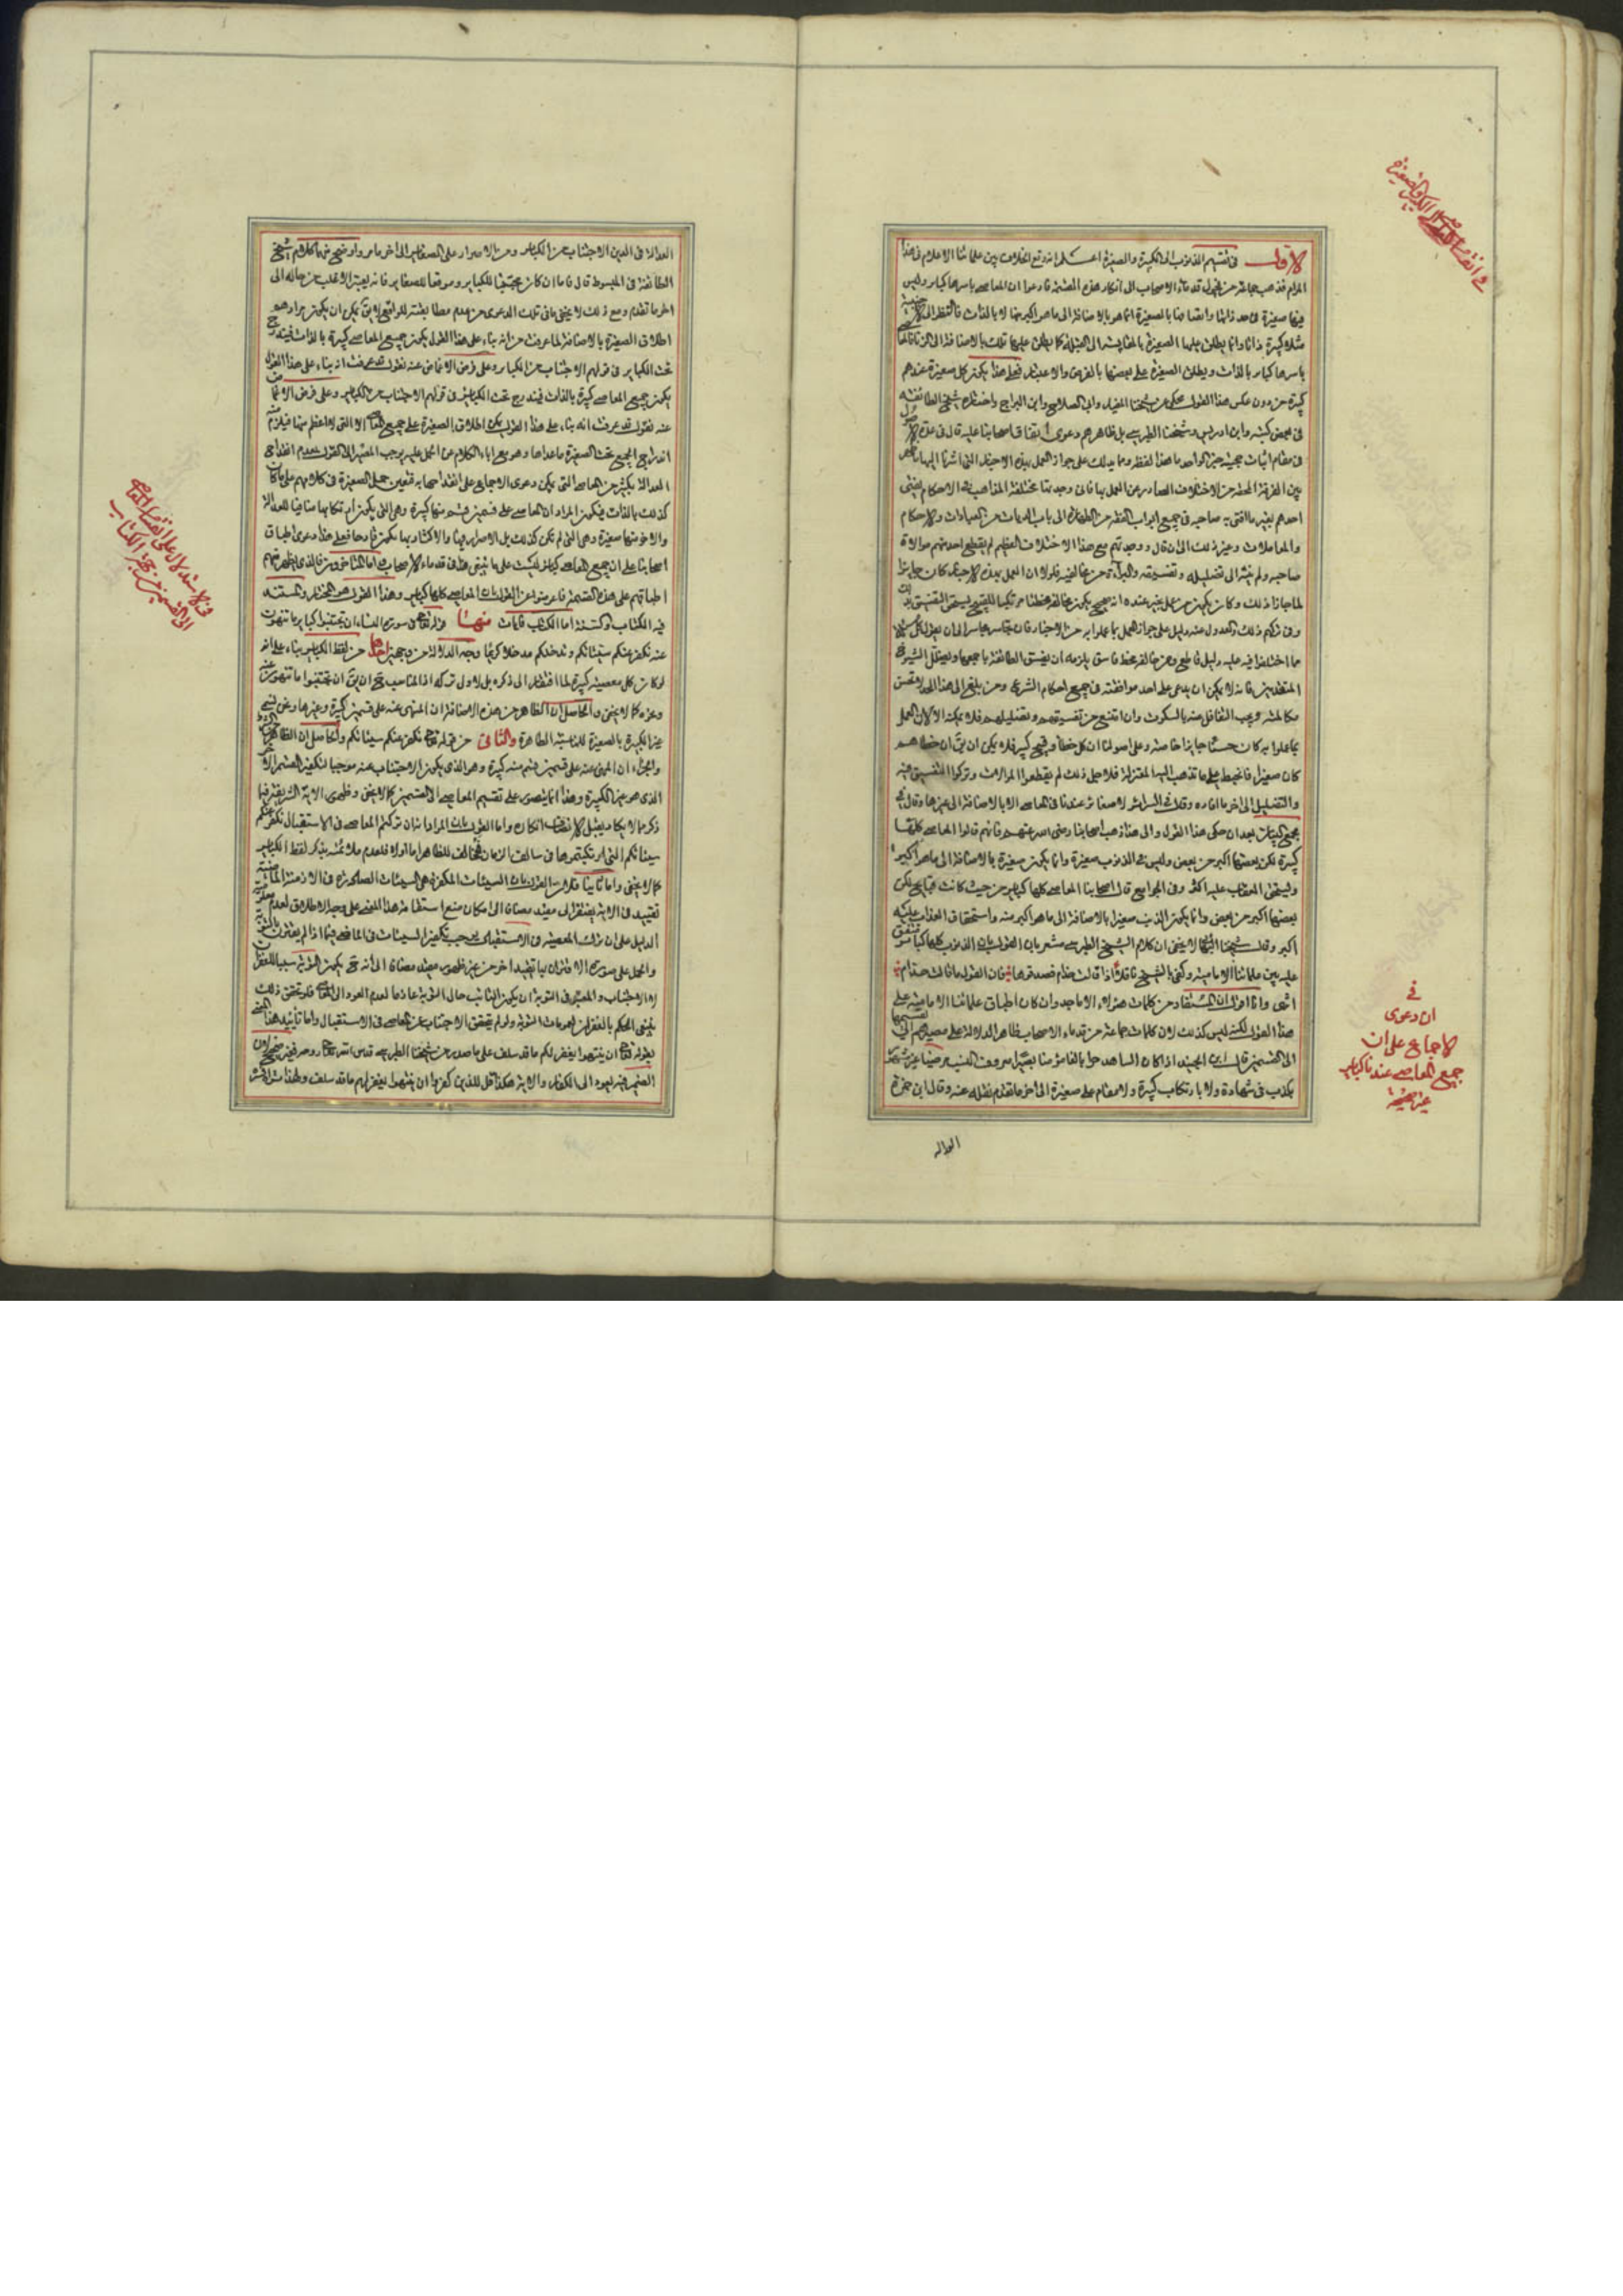 الاول في تقسيم الذنوب الى الكبيرة والصغيرة اعلم انه وقع الخلاف بين علمائنا الاعلام في هذا
المرام فذهب جماعة من فحول قدماء الاصحاب الى انكار هذه القسمة فادعوا ان المعاصي باسرها كباير وليس
فيها صغيرة في حد ذاتها وانما اتصافها بالصغيرة انما هو بالاضافة الى ما هو اكبر منها لا بالذات فالنظر الى الاجنبية
مثلا كبيرة ذاتا وانما يطلق عليها الصغيرة بالمقايسة الى القبلة كما يطلق عليها تلك بالاضافة الى الزنا فالمعاصي
باسرها كباير بالذات ويطلق الصغيرة على بعضها بالعرض والاعتبار فعلى هذا يكون كل صغيرة عندهم
كبيرة من دون عكس هذا القول محكي عن شيخنا المفيد وابي الصلاح وابن البراج واختاره شيخ الطائفة
في بعض كتبه وابن ادريس وشيخنا الطبرسي بل ظاهرهم دعوى اتفاق اصحابنا عليه قال في عدة الاصول
في مقام اثبات حجية خبر الواحد ما هذا لفظه ومما يدلك على جواز العمل بهذه الاخبار التي اشرنا اليها ما ظهر
بين الفرقة المحقة من الاختلاف الصادر عن العمل بها فاني وجدتها مختلفة المذاهب في الاحكام يفتي
احدهم بغير ما افتى به صاحبه في جميع ابواب الفقه من الطهارة الى باب الديات من العبادات والاحكام
والمعاملات وغير ذلك الى ان قال ووجدتهم مع هذا الاختلاف العظيم لم يقطع احد منهم موالاة
صاحبه ولم ينته الى تضليله وتفسيقه والبراءة من مخالفيه فلولا ان العمل بهذه الاخبار كان جايزا
لما جاز ذلك وكان يكون من عمل بخبر عنده انه صحيح يكون مخالفه مخطئا مرتكبا للقبيح يستحق التفسيق بذلك
وفي تركهم ذلك والعدول عنه دليل على جواز العمل بما عملوا به من الاخبار فان تجاسر متجاسر الى ان يقول كل شيء
مما اختلفوا فيه عليه دليل قاطع ومن خالفه مخطئ فاسق يلزمه ان يفسق الطائفة باجمعها ويضلل الشيوخ
المتقدمين فانه لا يمكن ان يدعي على احد موافقته في جميع احكام الشرع ومن بلغ الى هذا الحد لا يحسن
مكالمته ويجب التغافل عنه بالسكوت وان امتنع من تفسيقهم وتضليلهم فلا يمكنه الا لان العمل
بما عملوا به كان حسنا جايزا خاصة وعلى اصولنا ان كل خطأ وقبيح كبير فلا يمكن ان يق ان خطأهم
كان صغيرا فانحبط على ما تذهب اليه المعتزلة فلاجل ذلك لم يقطعوا الموالاة وتركوا التفسيق فيه
والتضليل الى اخر ما افاده وقال في السرائر لا صغائر عندنا في المعاصي الا بالاضافة الى غيرها وقال في
مجمع البيان بعد ان حكى هذا القول والى هذا ذهب اصحابنا رضي الله عنهم فانهم قالوا المعاصي كلها
كبيرة لكن بعضها اكبر من بعض وليس في الذنوب صغيرة وانما يكون صغيرة بالاضافة الى ما هو اكبر
ويستحق العقاب عليه اكثر وفي الجوامع قال اصحابنا المعاصي كلها كباير من حيث كانت قبايح لكن
بعضها اكبر من بعض وانما يكون الذنب صغيرا بالاضافة الى ما هو اكبر منه واستحقاق العذاب عليه
اكبر وقال شيخنا البهائي لا يخفى ان كلام الشيخ الطبرسي مشعر بان القول بان الذنوب كلها كباير متفق
عليه بين علمائنا الامامية وكفى بالشيخ ناقلا اذا قالت حذام فصدقوها فان القول ما قالت حذام
انتهى وانا اقول ان المستفاد من كلمات هؤلاء الاماجد وان كان اطباق علمائنا الامامية على
هذا القول لكنه ليس كذلك لان كلمات جماعة من قدماء الاصحاب ظاهر الدلالة على مصيرهم الى تقسيمها
الى القسمين قال ابن الجنيد اذا كان الشاهد حرا بالغا مؤمنا بصيرا معروف النسب مرضيا غير مشهور
بكذب في شهادة ولا بارتكاب كبيرة ولا مقام على صغيرة الى اخر ما تقدم نقله عنه وقال ابن حمزة
في
ان دعوى
الاجماع على ان
جميع المعاصي عندنا كباير
غير صحيحة
العدالة في الدين الاجتناب من الكباير ومن الاصرار على الصغاير الى اخر ما مر واوضح منها كلام شيخ
الطائفة في المبسوط قال فاما ان كان مجتنبا للكباير وموقعا للصغاير فانه يعتبر الاغلب من حاله الى
اخر ما تقدم ومع ذلك لا يخفى ما في تلك الدعوى من عدم مطابقته للواقع لا يق يمكن ان يكون مرادهم
اطلاق الصغيرة بالاضافة لما عرفت من انه بناء على هذا القول يكون جميع المعاصي كبيرة بالذات فيندرج
تحت الكباير في قولهم الاجتناب من الكباير وعلى فرض الاغماض عنه نقول قد عرفت انه بناء على هذا القول
يكون جميع المعاصي كبيرة بالذات فيندرج تحت الكباير في قولهم الاجتناب من الكباير وعلى فرض الاغماض
عنه نقول قد عرفت انه بناء على هذا القول يمكن اطلاق الصغيرة على جميع المعاصي الا التي لا اعظم منها فيلزم
اندراج الجميع تحت الصغيرة ما عداها وهو مع اباء الكلام عن الحمل عليه يوجب المصير الى القول بعدم انقداح
العدالة بكثير من المعاصي التي يمكن دعوى الاجماع على انقداحها به فتعين حمل الصغيرة في كلامهم على ما كان
كذلك بالذات فيكون المراد ان المعاصي على قسمين قسم منها كبيرة وهي التي يكون ارتكابها منافيا للعدالة
والاخر منها صغيرة وهي التي لم تكن كذلك بل الاصرار فيها والاكثار بها يكون قادحا فعلى هذا دعوى اطباق
اصحابنا على ان جميع المعاصي كباير ليست على ما ينبغي هذا في قدماء الاصحاب واما المتاخرون فالذي يظهر منهم
اطباقهم على هذه القسمة فاعرضوا عن القول بان المعاصي كلها كباير وهذا القول هو المختار والمستند
فيه الكتاب والسنة اما الكتاب فايات منها قوله تعالى في سورة النساء ان تجتنبوا كباير ما تنهون
عنه نكفر عنكم سيئاتكم وندخلكم مدخلا كريما وجه الدلالة من وجهين احدهما من لفظ الكباير بناء على انه
لو كان كل معصية كبيرة لما افتقر الى ذكره بل الاولى تركه اذ المناسب ح ان يق ان تجتنبوا ما تنهون عنه
وغيره كما لا يخفى والحاصل ان الظاهر من هذه الاضافة ان المنهي عنه على قسمين كبيرة وغيرها ونحن نسمي
غير الكبيرة بالصغيرة للمناسبة الظاهرة والثاني من قوله تعالى نكفر عنكم سيئاتكم والحاصل ان الظاهر من الشرط
والجزاء ان المنهي عنه على قسمين قسم منه كبيرة وهو الذي يكون الاجتناب عنه موجبا لتكفير القسم الاخر
الذي هو غير الكبيرة وهذا انما يتصور على تقسيم المعاصي الى القسمين كما لا يخفى وظهور الاية الشريفة فيما
ذكر مما لا يكاد يقبل الانصاف انكاره واما القول بان المراد انه ان تركتم المعاصي في الاستقبال نكفر عنكم
سيئاتكم التي ارتكبتموها في سالف الزمان فمخالف للظاهر اما اولا فلعدم ملائمته بذكر لفظ الكباير
كما لا يخفى واما ثانيا فلان القول بان السيئات المكفرة هي السيئات الصادرة في الازمنة الماضية
تقييد في الاية يفتقر الى مقيد مضافا الى امكان منع استقامة هذا المعنى على وجه الاطلاق لعدم معلومية
الدليل على ان ترك المعصية في الاستقبال يوجب تكفير السيئات في الماضي فيما اذا لم يقترن بالتوبة
والحمل على صورة الاقتران بها تقييد اخر من غير ظهور مقيد مضافا الى انه ح يكون التوبة سببا للغفران
لا الاجتناب والمعتبر في التوبة ان يكون التائب حال التوبة عازما لعدم العود الى المعاصي فلو تحقق ذلك
ينبغي الحكم بالغفران لعمومات التوبة ولو لم يتحقق الاجتناب عن المعاصي في الاستقبال واما تأييد هذا المعنى
بقوله تعالى ان ينتهوا يغفر لكم ما قد سلف على ما صدر من شيخنا الطبرسي قدس الله تعالى روحه فغير صحيح لان
الضمير فيه يعود الى الكفار والاية هكذا قل للذين كفروا ان ينتهوا يغفر لهم ما قد سلف وهذا
في الاستدلال على انقسام المعاصي
الى القسمين من جهة الكتاب
العداله